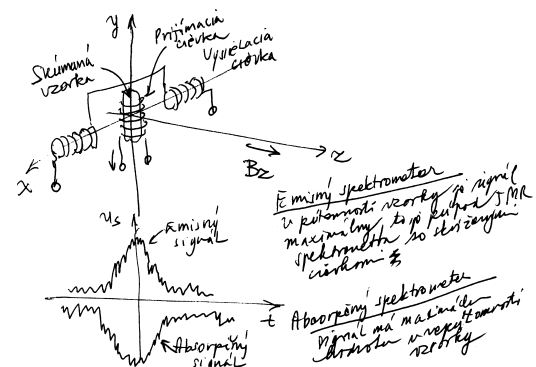 y
Prijímacia
cievka
Vysielacia
cievka
Skúmaná
vzorka
x
Bz
z
us
Emisný
signál
t
Absorpčný
signál
Emisný spektrometer
v prítomnosti vzorky je signál
maximálny, to je prípad JMR
spektrometra so skríženými
cievkami
Absorpčný spektrometer
signál má maximálnu
hodnotu v neprítomnosti
vzorky